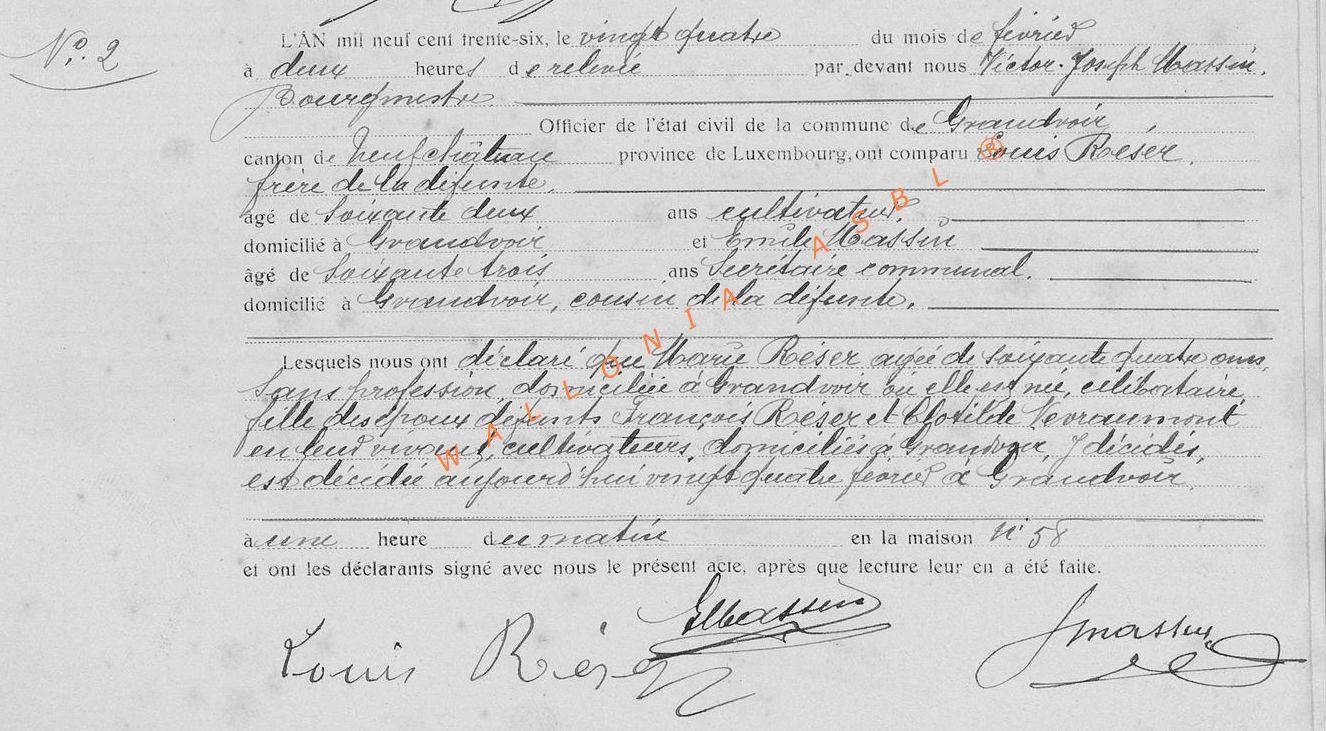 N° 2
L'AN mil neuf cent trente-six, le vingt quatre du mois de février
à deux heures de relevée par devant nous Victor-Joseph Massin,
Bourgmestre
Officier de l'état civil de la commune de Grandvoir
canton de Neufchâteau province de Luxembourg, ont comparu Louis Réser,
frère de la défunte,
âgé de soixante deux ans cultivateur,
domicilié à Grandvoir et Emile Massin
âgé de soixante trois ans secrétaire communal,
domicilié à Grandvoir, cousin de la défunte,
Lesquels nous ont déclaré que Marie Réser agée de soixante quatre ans,
sans profession, domiciliée à Grandvoir où elle est née, célibataire,
fille des époux défunts François Réser et Clotilde Nevraumont
en leur vivant, cultivateurs, domiciliés à Grandvoir, y décédés,
est décédée aujourd'hui vingt quatre février à Grandvoir
à une heure du matin en la maison N° 58
et ont les déclarants signé avec nous le présent acte, après que lecture leur en a été faite.
Louis Réser EMassin Jmassin
WALLONIA ASBL ®